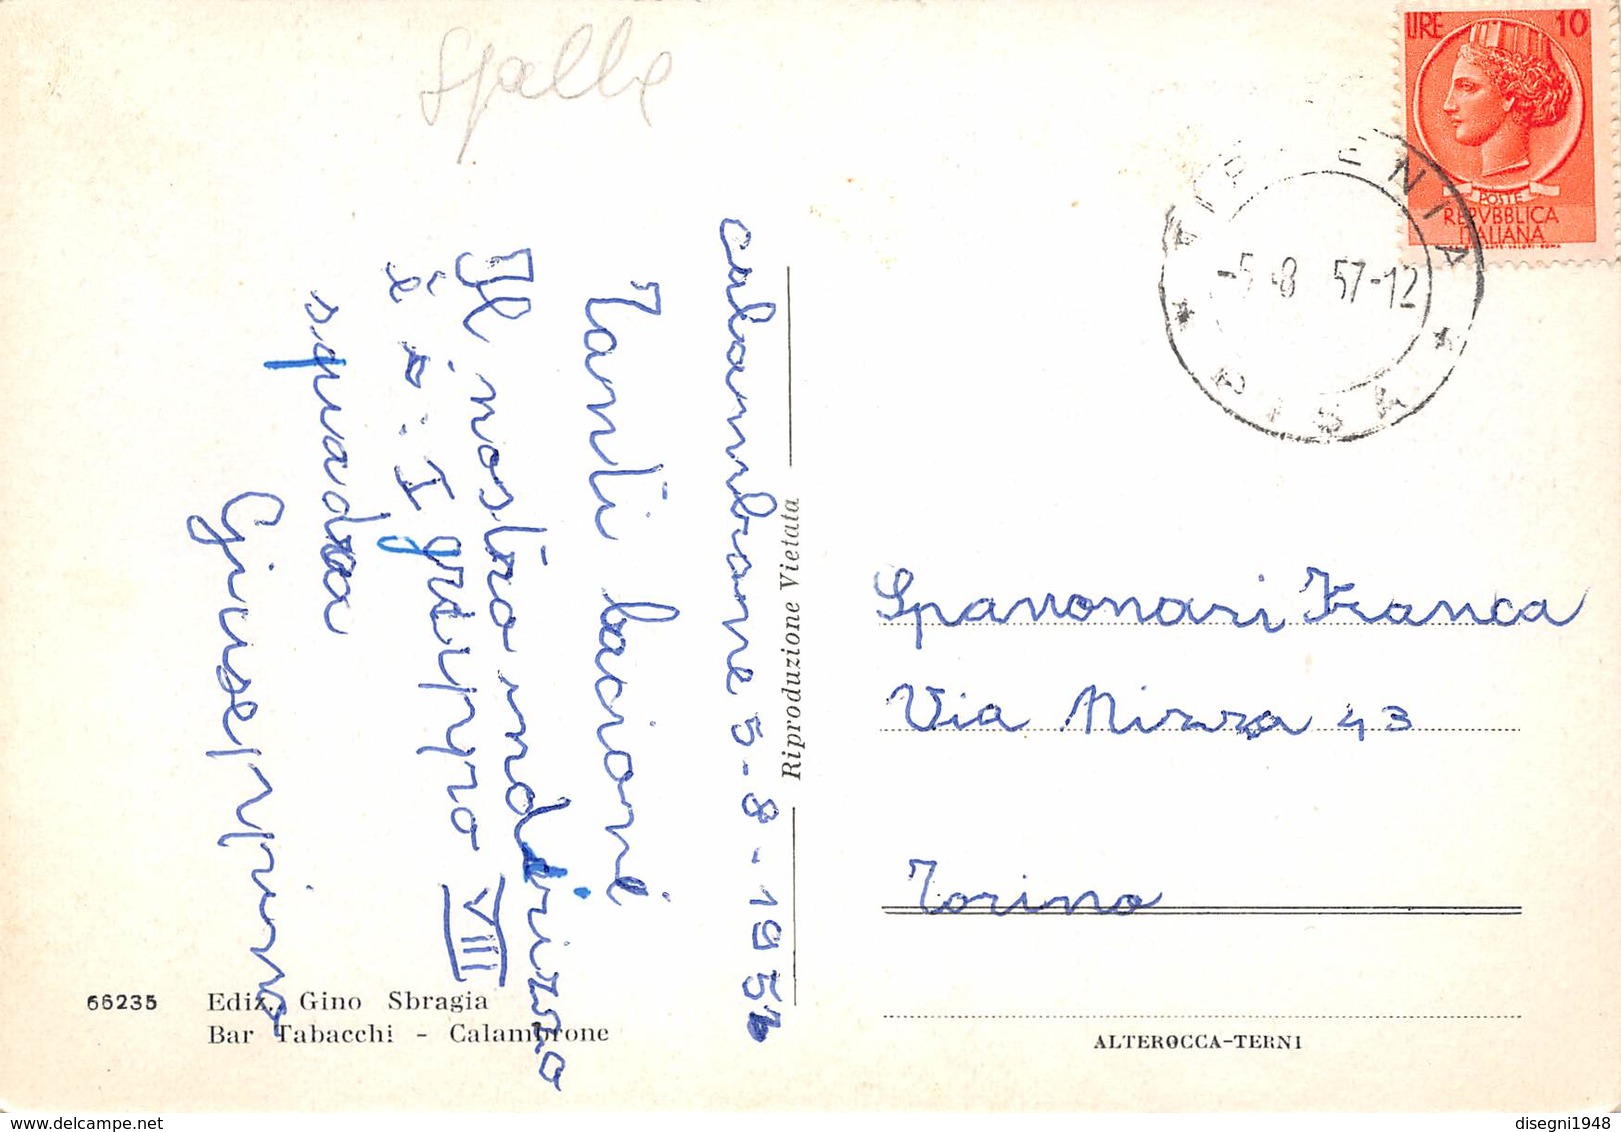 Calambrone 5-8-195
Tanti bacioni
Il nostro indirizzo
è : I gruppo VIII
squadra
Giuseppina
Riproduzione Vietata
66235 Ediz. Gino Sbragia
Bar Tabacchi - Calambrone
LIRE 10
POSTE
REPVBBLICA
ITALIANA
-5-8 57-12
PISA
Spavonari Franca
Via Nizza 43
Torino
ALTEROCCA-TERNI
disegni1948